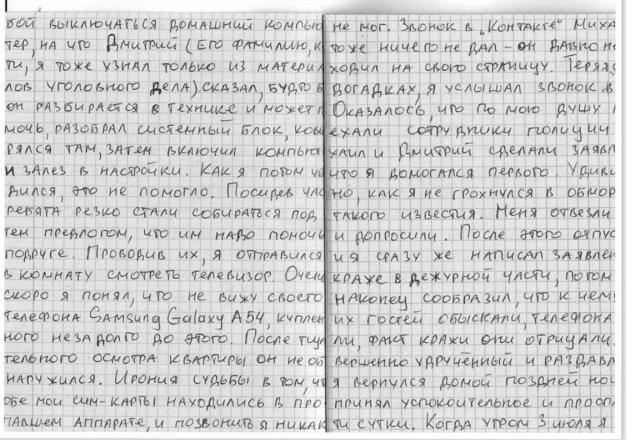 бой выключаться домашний компью
тер, на что Дмитрий (его фамилию, к
ти, я тоже узнал только из материа
лов уголовного дела) сказал, будто б
он разбирается в технике и может п
мочь, разобрал системный блок, ковы
рялся там, затем включил компьют
и залез в настройки. Как я потом уб
дился, это не помогло. Посидев час
ребята резко стали собираться под
тем предлогом, что им надо помочь
подруге. Проводив их, я отправился
в комнату смотреть телевизор. Очень
скоро я понял, что не вижу своего
телефона Samsung Galaxy A54, куплен
ного незадолго до этого. После тща
тельного осмотра квартиры он не об
наружился. Ирония судьбы в том, чт
обе мои сим-карты находились в про
павшем аппарате, и позвонить я никак
не мог. Звонок в „Контакте" Миха
тоже ничего не дал - он давно не
ходил на свою страницу. Теряяс
догадках, я услышал звонок в
Оказалось, что по мою душу п
ехали сотрудники полиции
хаил и Дмитрий сделали заявл
что я домогался первого. Удиви
но, как я не грохнулся в обмор
такого известия. Меня отвезли
и допросили. После этого отпус
и я сразу же написал заявлен
краже в дежурной части, потом
наконец сообразил, что к чем
их гостей обыскали, телефона
ли, факт кражи они отрицали.
вершенно удручённый и раздавл
я вернулся домой поздней ноч
принял успокоительное и просп
ти сутки. Когда утром 3 июля я